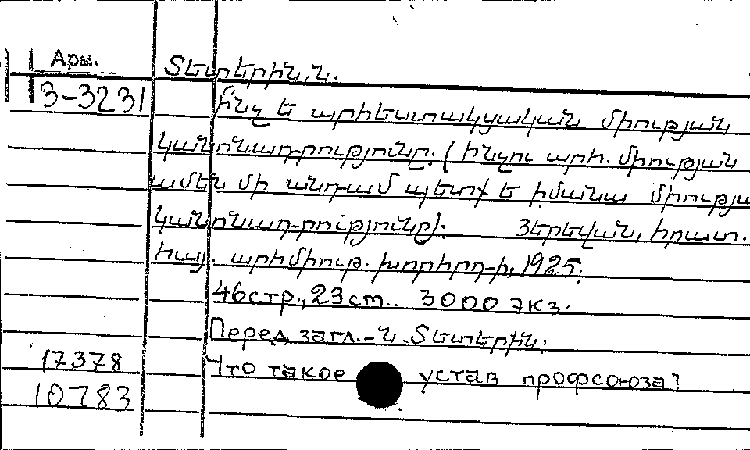 Арм.
Տետերին, Ն.
3-3231
Ի՞նչ է արհեստակցական միության
կանոնադրությունը. (Ինչու արհ. միության
ամեն մի անդամ պետք է իմանա միության
կանոնադրությունը). Յերեվան, հրատ.
Հայ. արհմիութ. խորհրդ-ի, 1925.
46стр., 23см.. 3000 экз.
Перед загл.-Ն. Տետերին.
17378 Что такое устав профсоюза?
10783